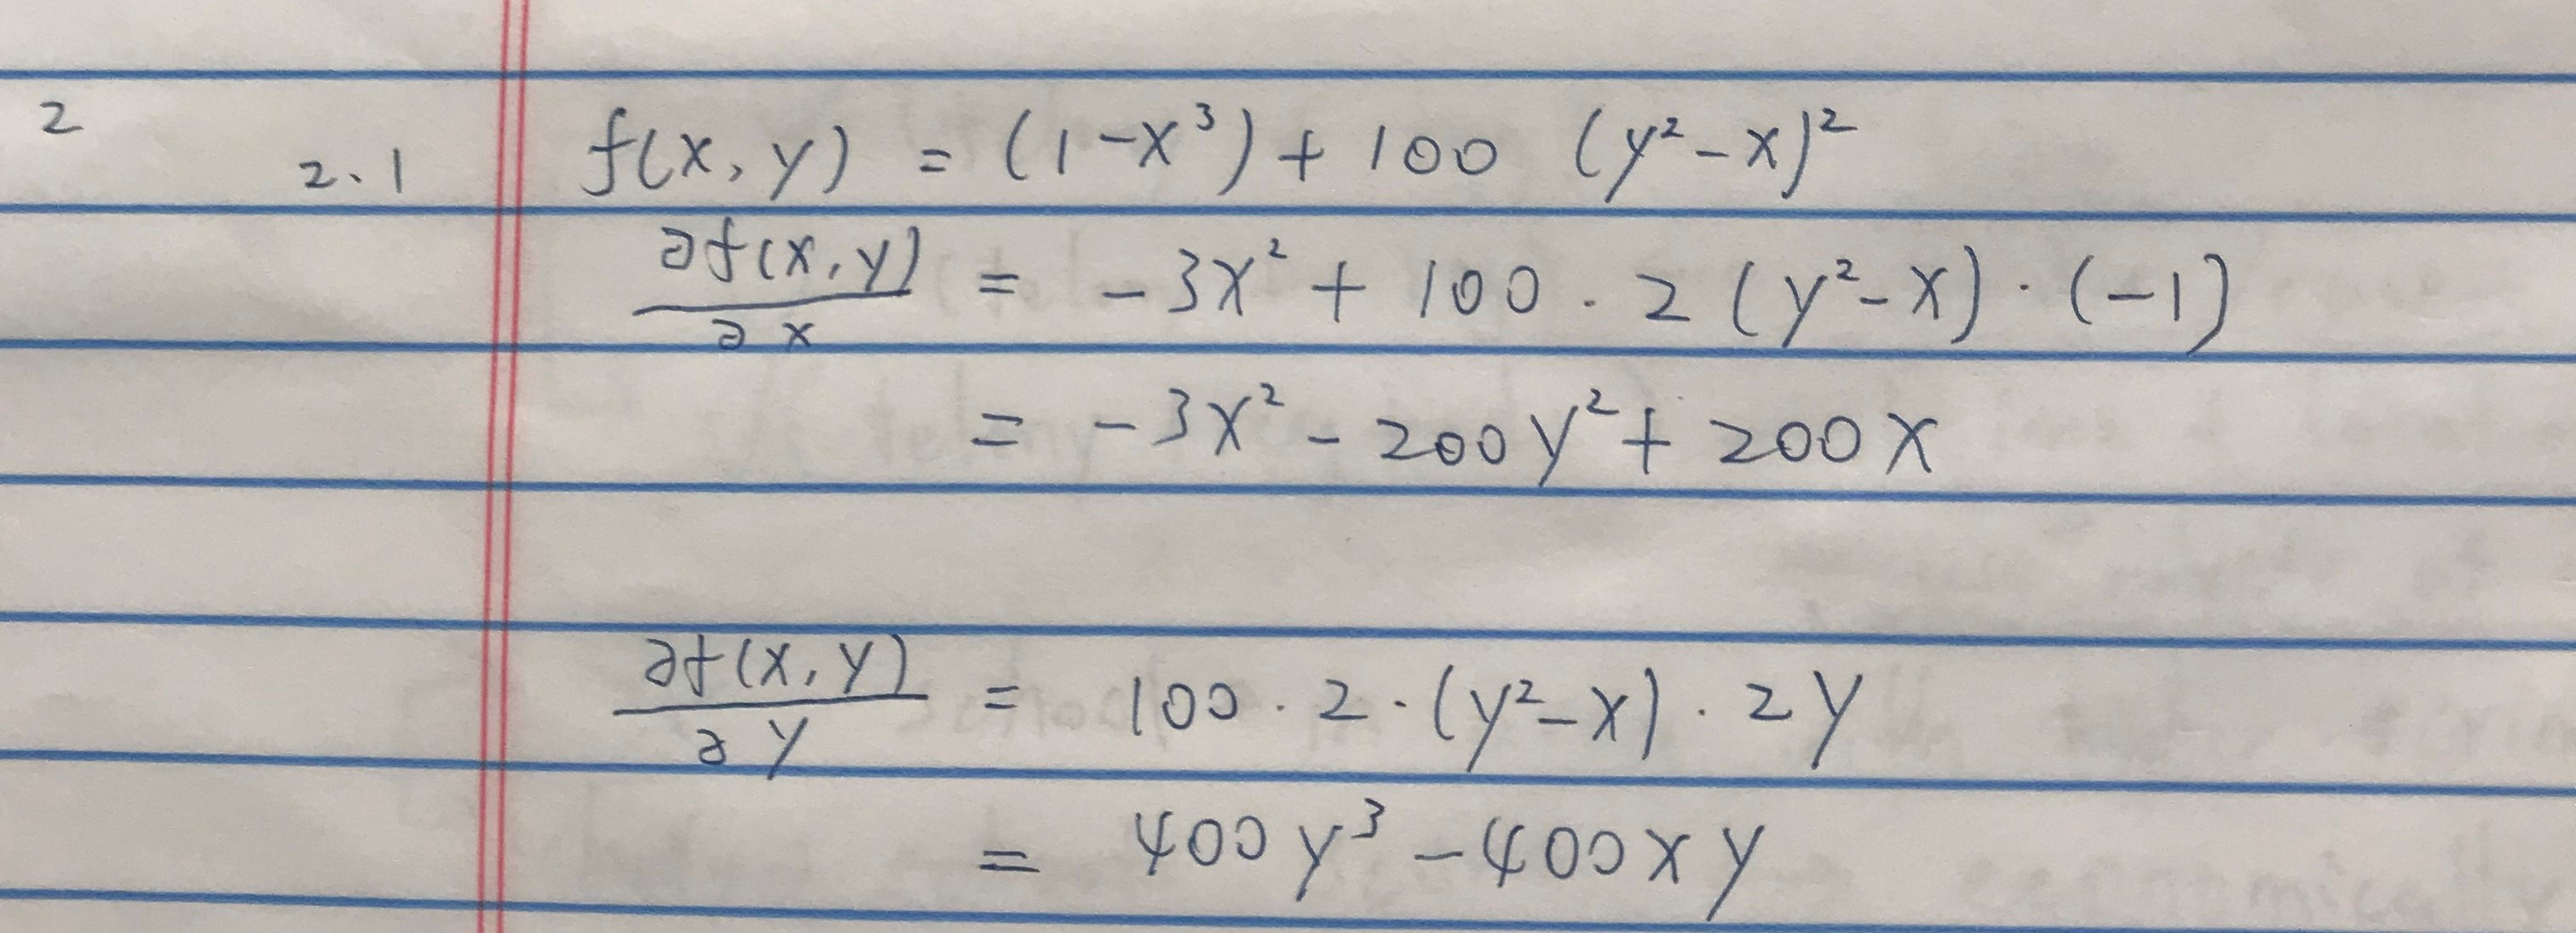 2
2.1 f(x, y) = (1-x³) + 100 (y²-x)²
∂f(x, y)/∂x = -3x² + 100 · 2 (y²-x) · (-1)
= -3x² - 200y² + 200x
∂f(x, y)/∂y = 100 · 2 · (y²-x) · 2y
= 400y³ - 400xy